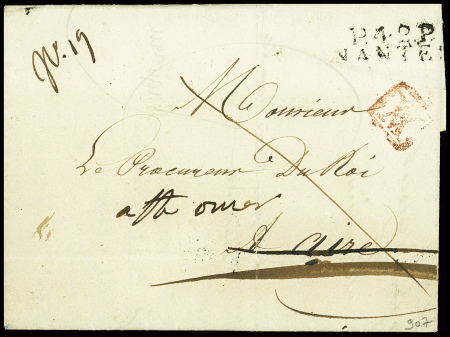 N.° 19
P.42.P
NANTES
Monsieur
Le Procureur Du Roi
a St omer
A aire
307